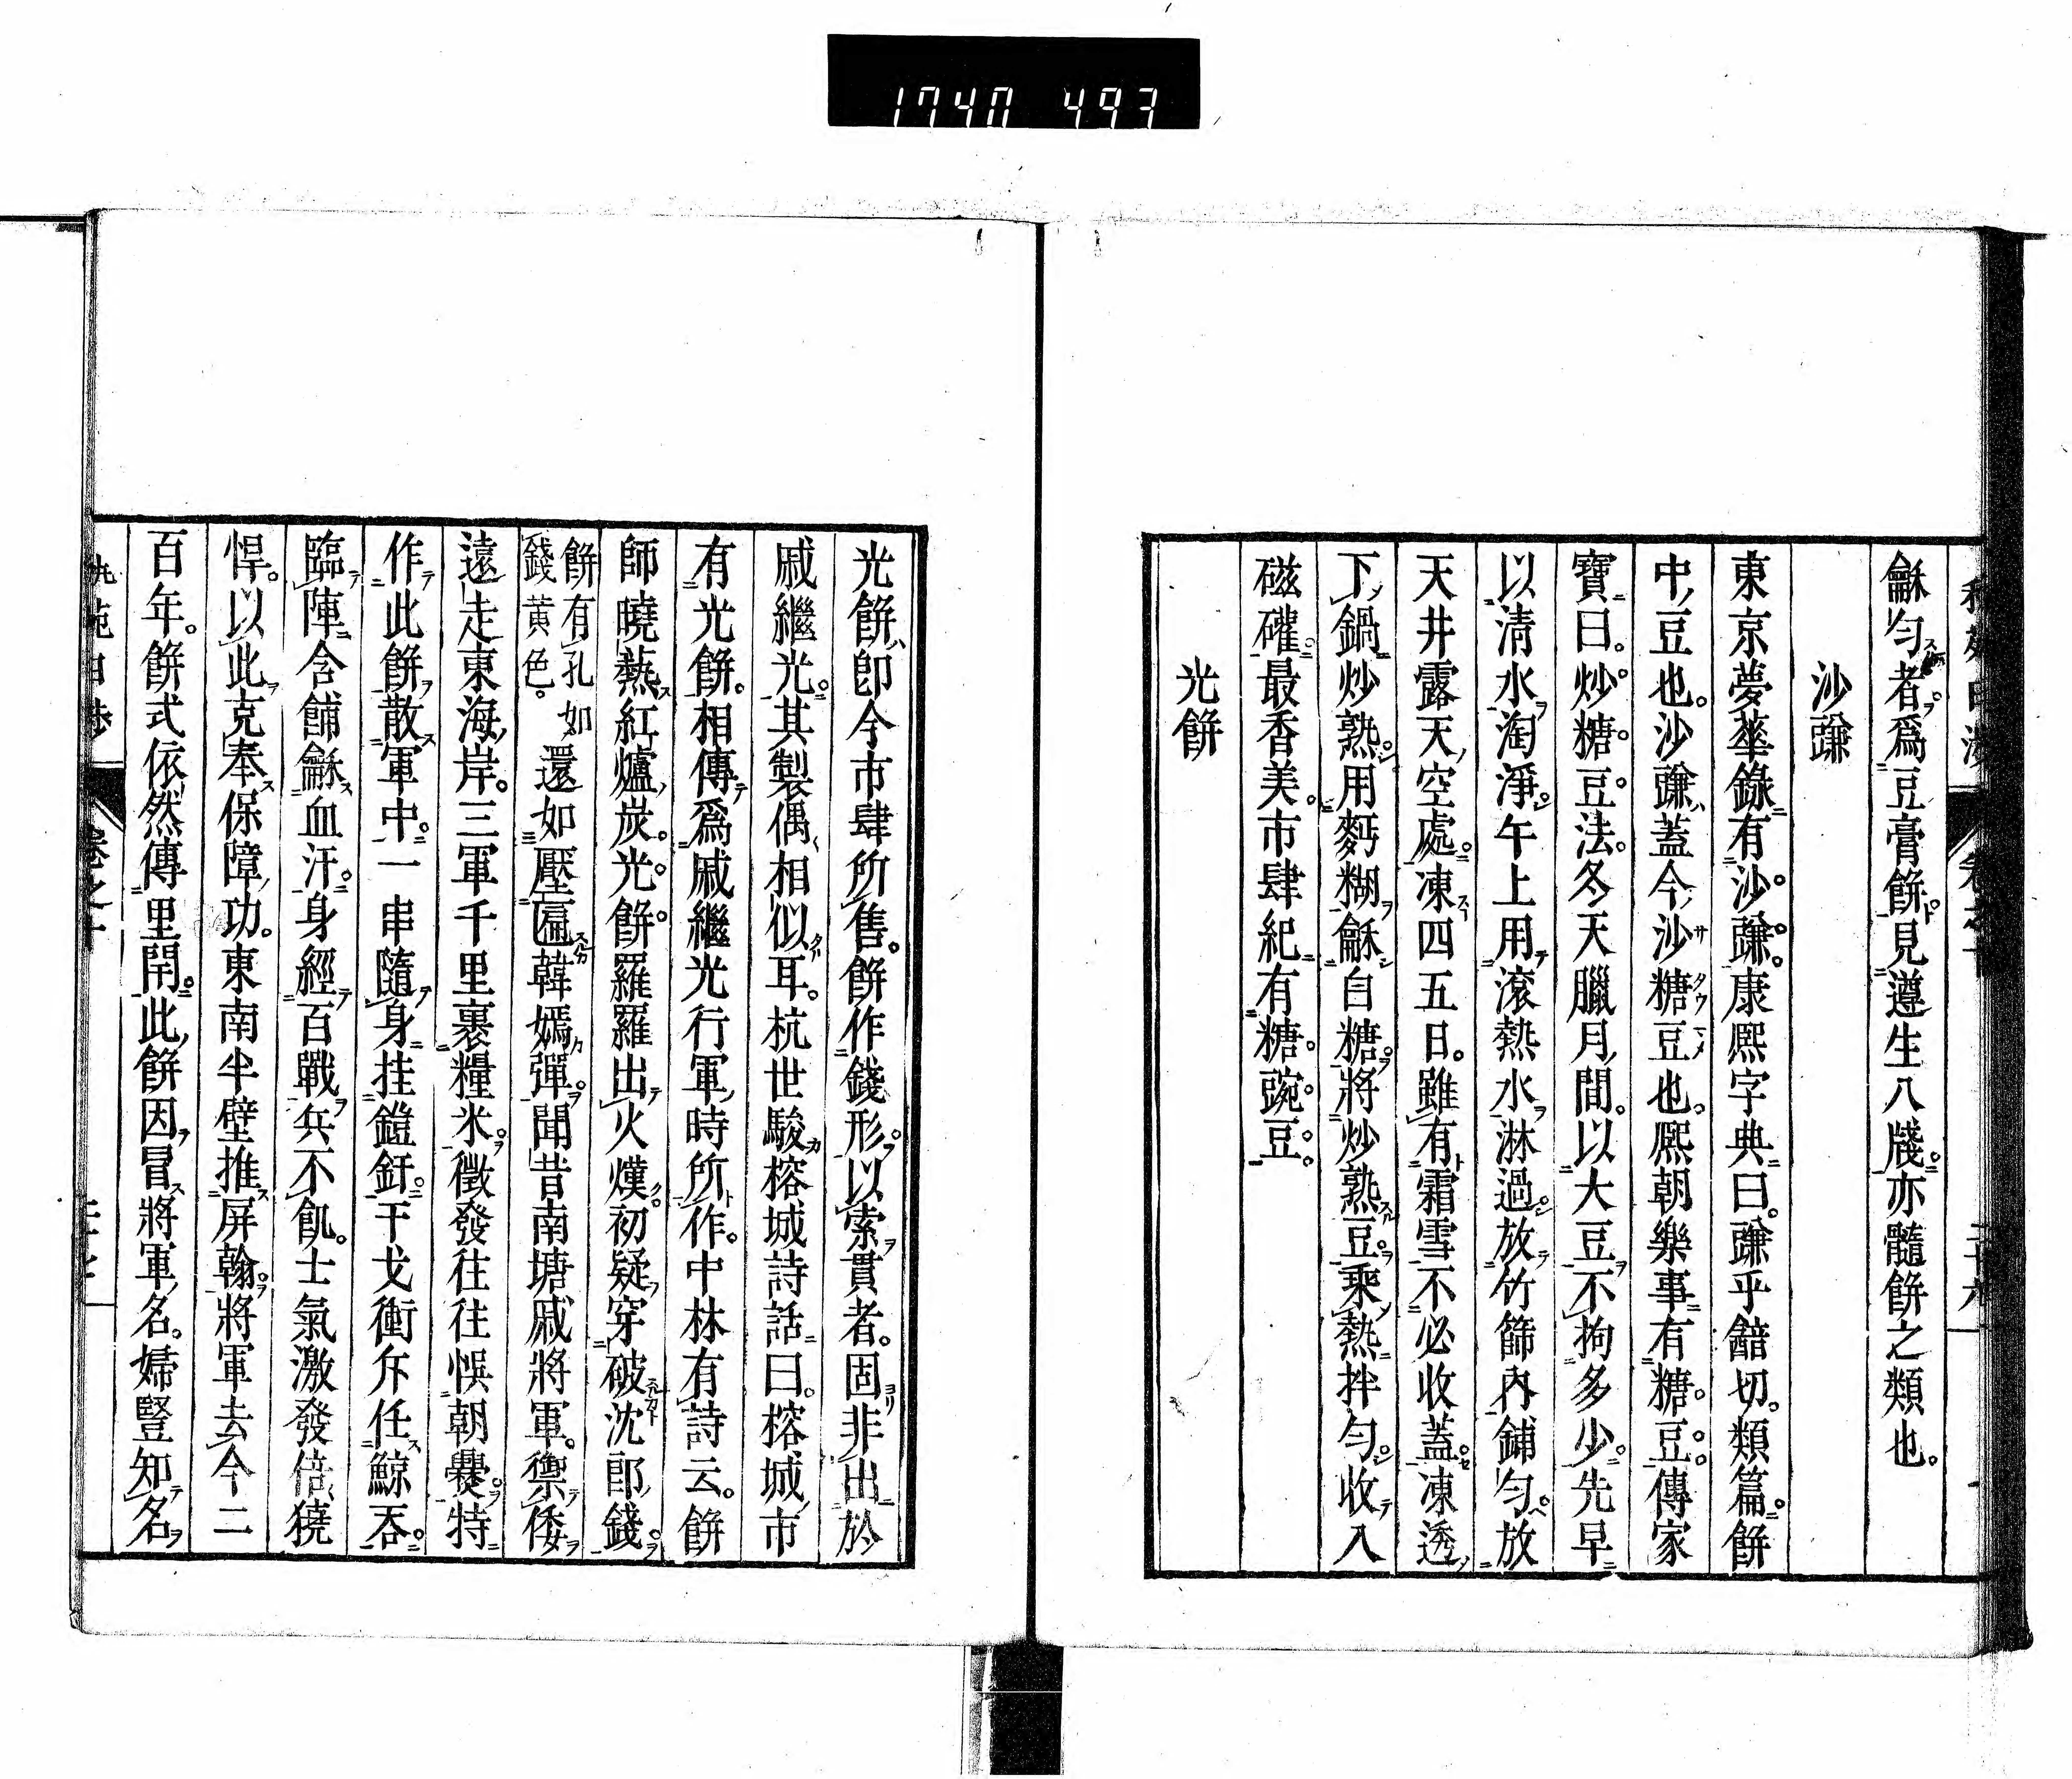 1740 493
龢勻者爲豆膏餅見遵生八牋亦髓餅之類也。
沙豏
東京夢華錄有沙豏康熙字典曰豏乎韽切類篇餅
中豆也沙豏蓋今沙糖豆也熙朝樂事有糖豆傳家
寶曰炒糖豆法冬天臘月間以大豆不拘多少先早
以清水淘淨午上用滾熱水淋過放竹篩內鋪勻放
天井露天空處凍四五日雖有霜雪不必收蓋凍透
下鍋炒熟用麪糊龢白糖將炒熟豆乘熱拌勻收入
磁礶最香美市肆紀有糖豌豆
光餅
光餅即今市肆所售餅作錢形以索貫者固非出於
戚繼光其製偶相似耳杭世駿榕城詩話曰榕城市
有光餅相傳爲戚繼光行軍時所作中林有詩云餅
師曉熱紅爐炭光餅羅羅出火熯初疑穿破沈郎錢
餅有孔如錢黃色。還如壓匾韓嫣彈聞昔南塘戚將軍禦倭
遠走東海岸三軍千里裹糧米徵發往往悞朝爨特
作此餅散軍中一串隨身挂鎧釬干戈衝斥任鯨吞
臨陣含餔龢血汗身經百戰兵不飢士氣激發倍獟
悍以此克奉保障功東南半壁推屏翰將軍去今二
百年餅式依然傳里閈此餅因冒將軍名婦豎知名
卷之十